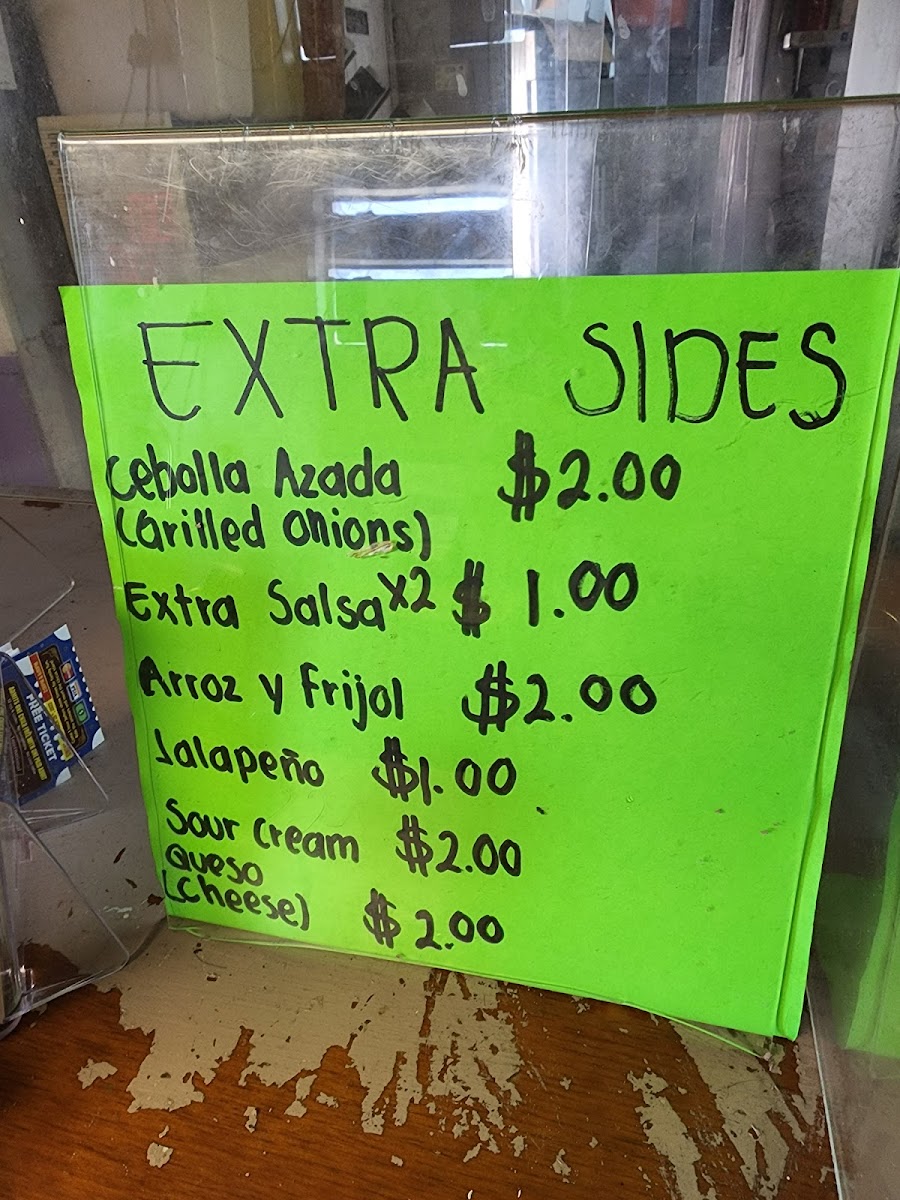 EXTRA SIDES
Cebolla Azada $2.00
(Grilled Onions)
Extra Salsa x2 $1.00
Arroz y Frijol $2.00
Jalapeño $1.00
Sour Cream $2.00
Queso
(Cheese) $2.00
FREE TICKET